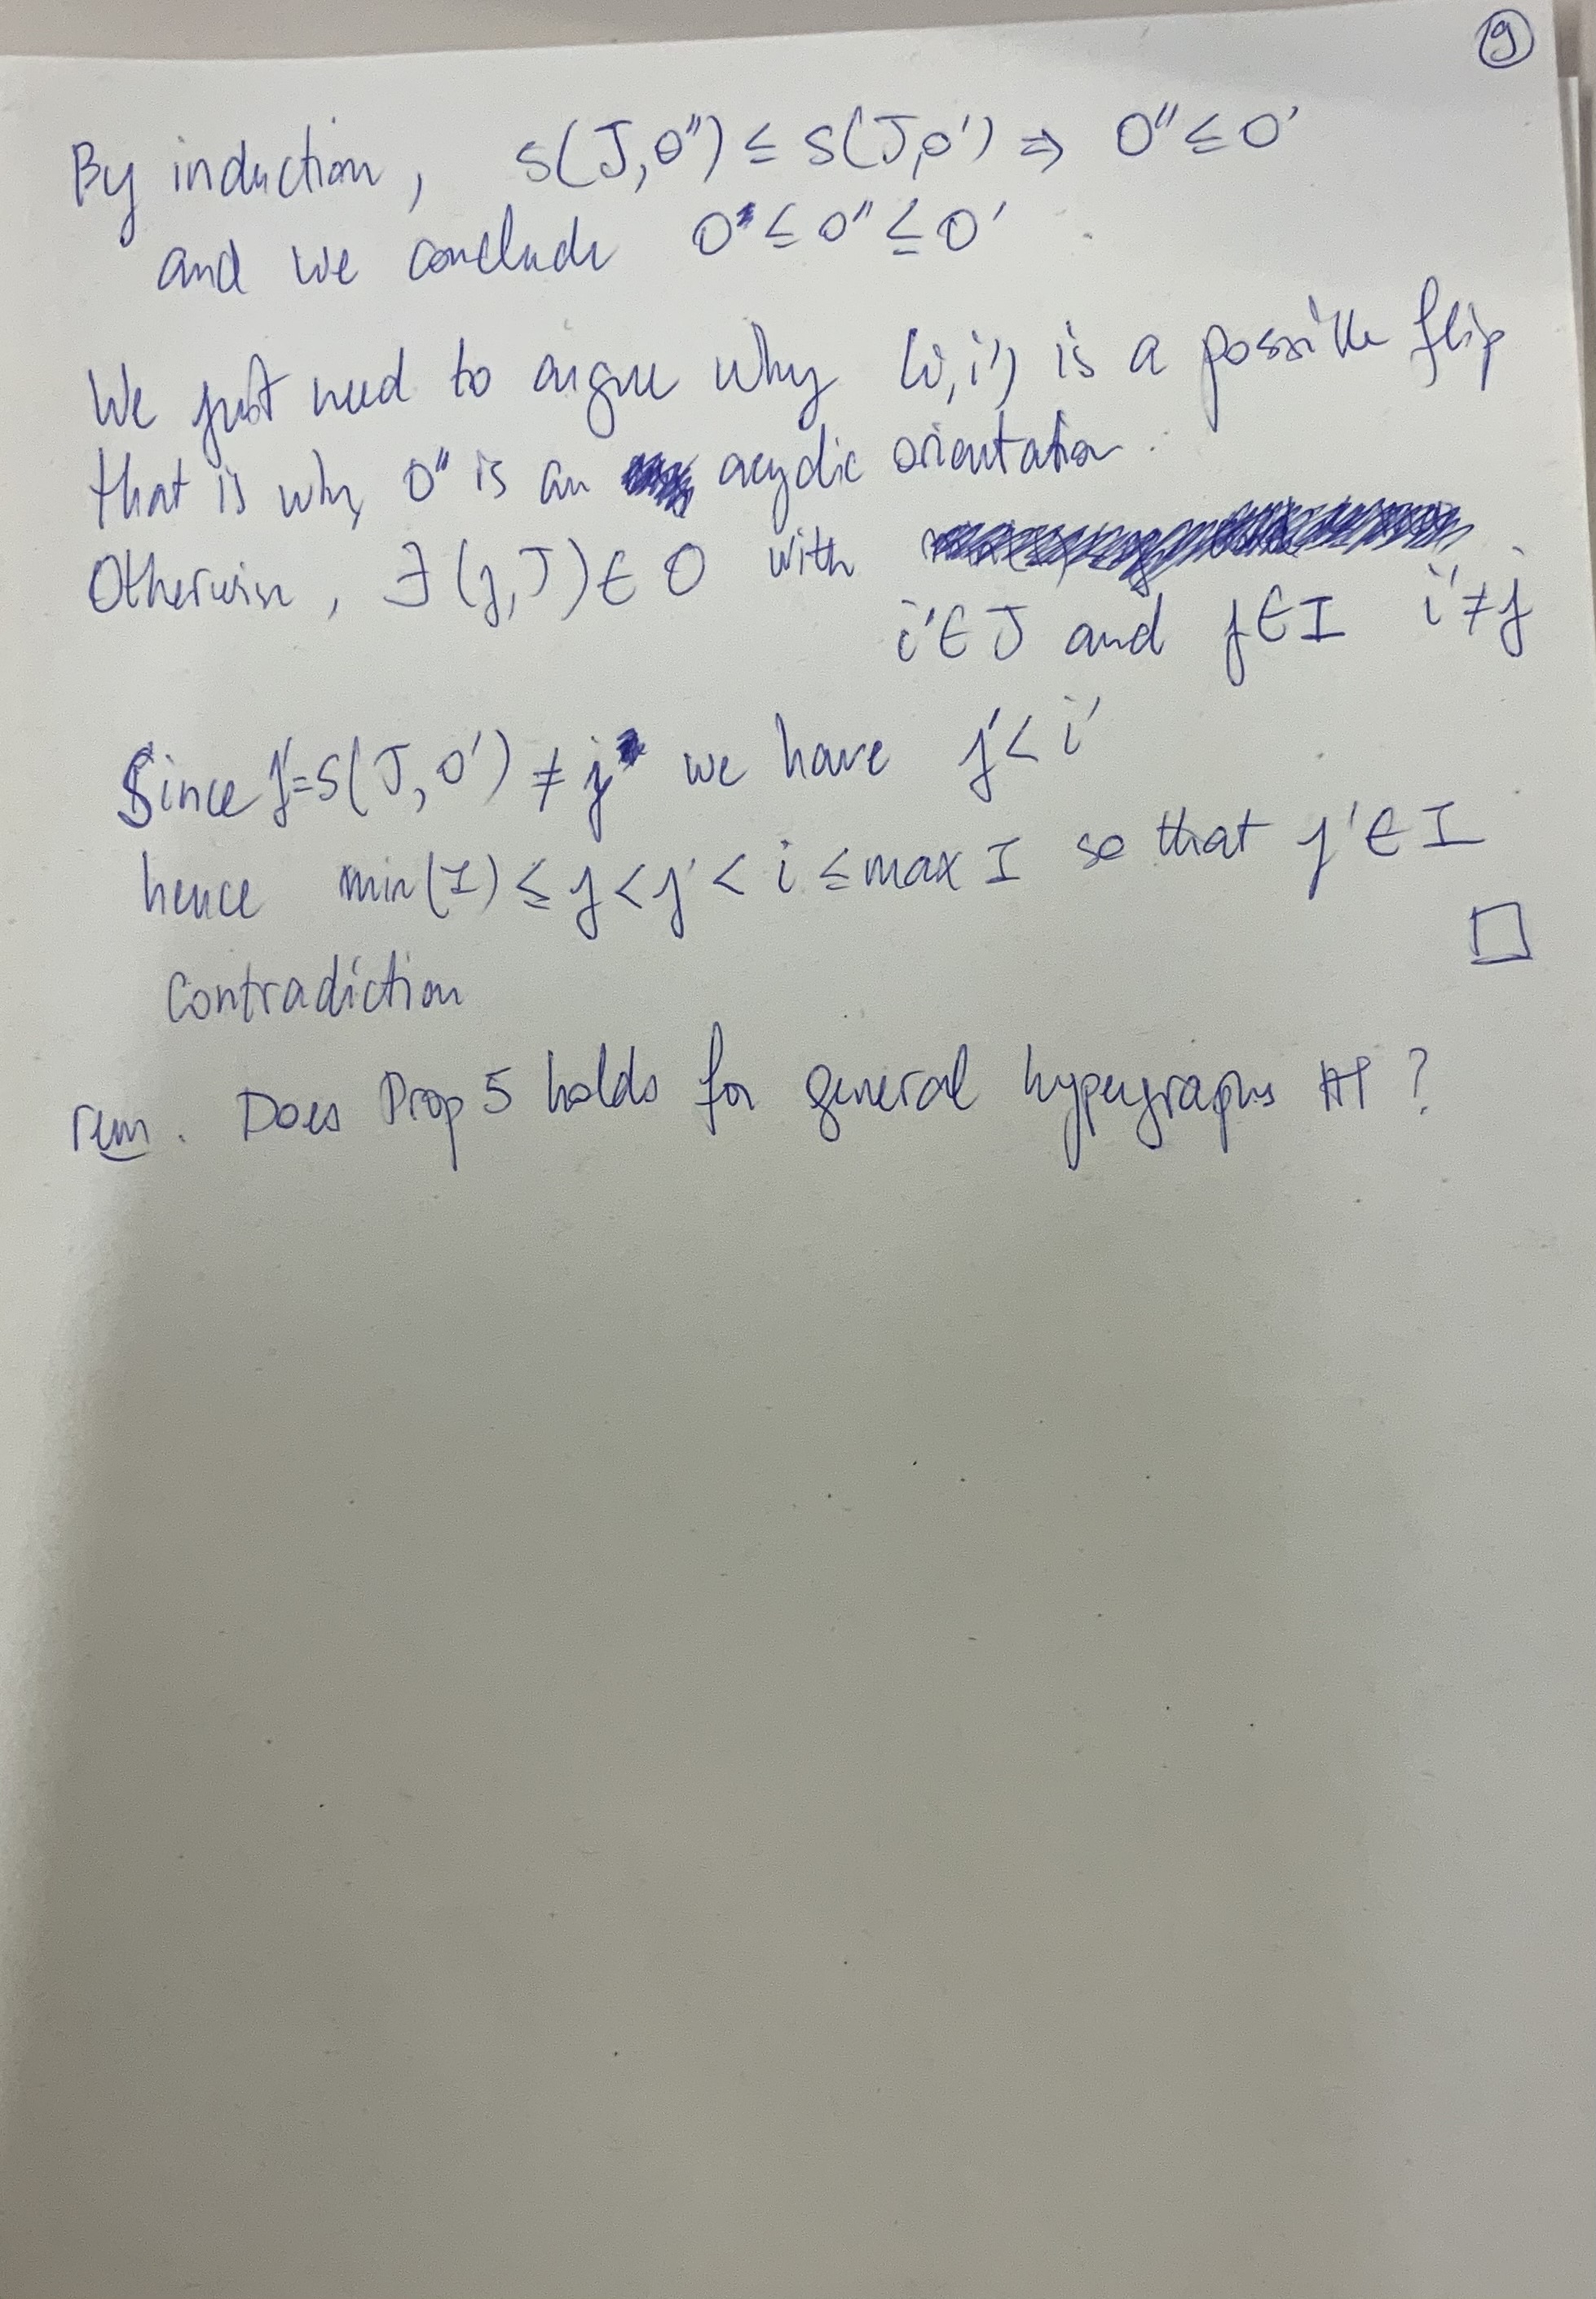 9
By induction, s(J,O'') ≤ s(J,O') ⇒ O'' ≤ O'
and we conclude O ≤ O'' ≤ O'.
We just need to argue why (i,i') is a possible flip
that is why O'' is an acyclic orientation.
Otherwise, ∃ (j,J) ∈ O with
i' ∈ J and j ∈ I i' ≠ j
Since j' = s(J,O') ≠ j we have j' < i'
hence min(I) ≤ j < j' < i ≤ max I so that j' ∈ I
Contradiction □
rem. Does Prop 5 holds for general hypergraphs ℍ ?